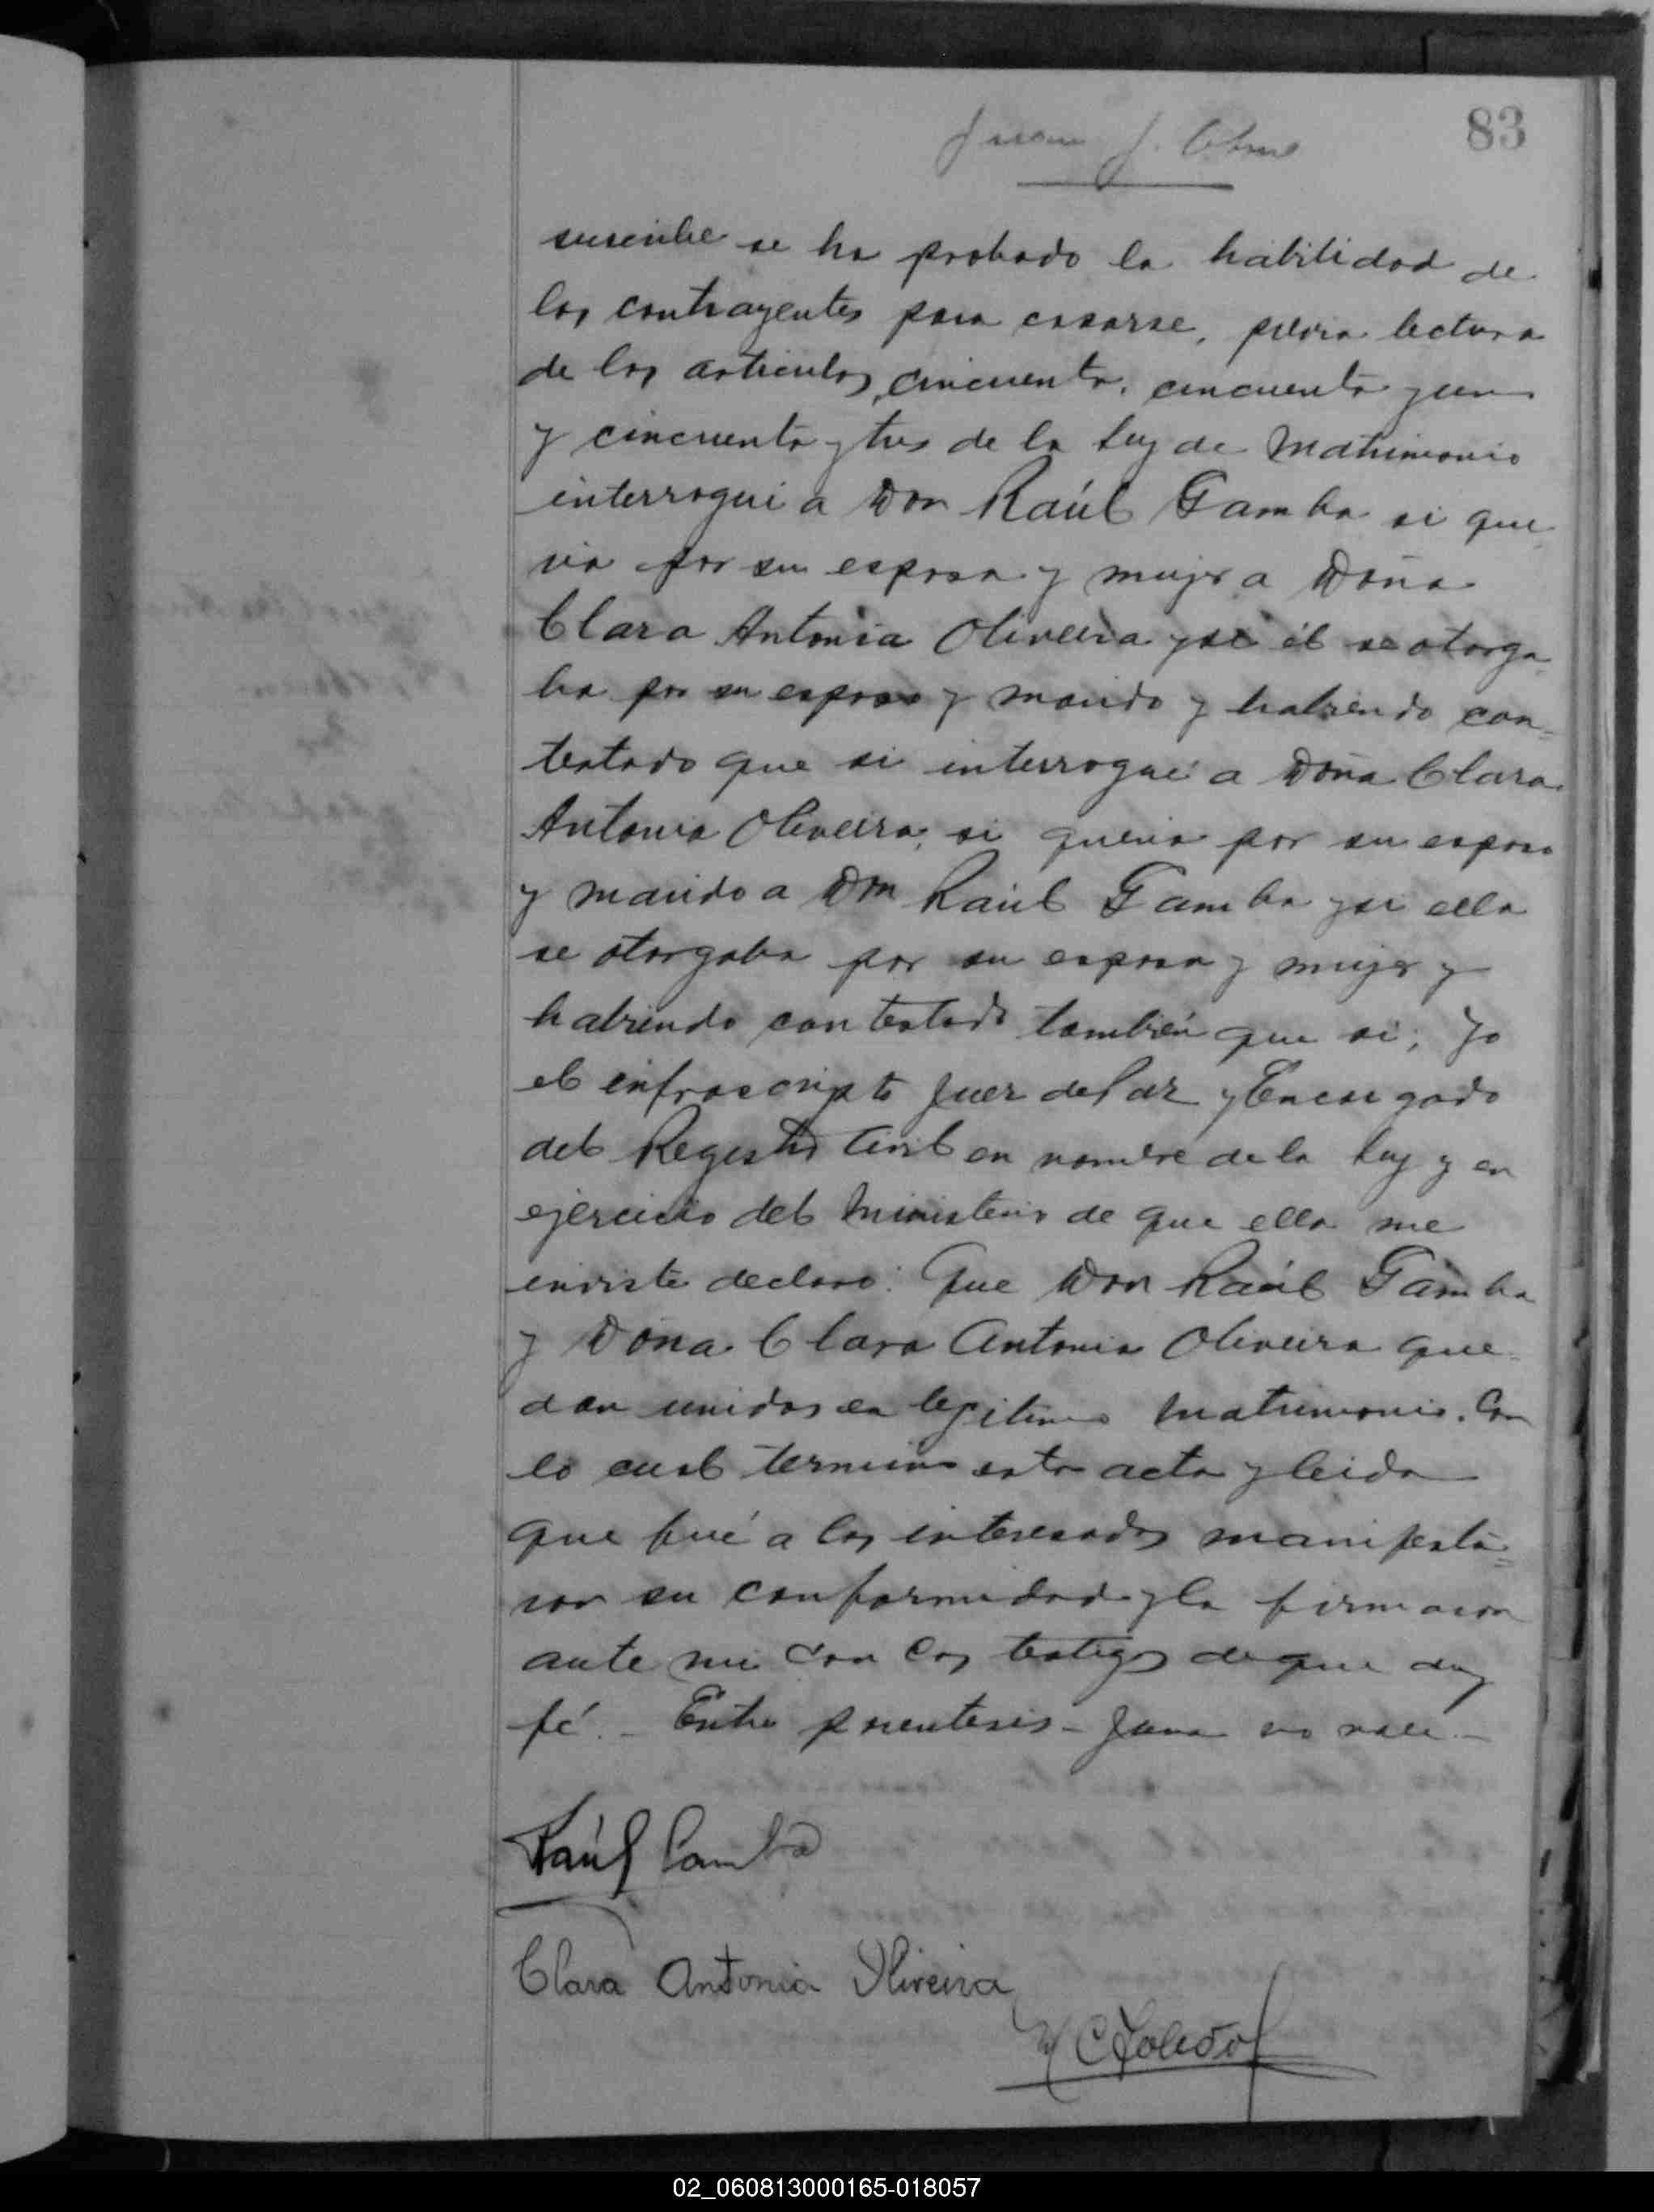 83
Juan J.
suscribe se ha probado la habilidad de
los contrayentes para casarse, previa lectura
de los articulos, cincuenta, cincuenta y uno
y cincuenta y tres de la Ley de Matrimonio
interrogué a Don Raúl Gamba si que
ria por su esposa y mujer a Doña
Clara Antonia Oliveira y si él se otorga
ba por su esposo y marido y habiendo con=
testado que si interrogué a Doña Clara
Antonia Oliveira, si queria por su esposo
y marido a Don Raúl Gamba y si ella
se otorgaba por su esposa y mujer y
habiendo contestado también que si; Yo
el infrascripto Juez de Paz y Encargado
del Registro Civil en nombre de la Ley y en
ejercicio del Ministerio de que ella me
inviste declaro: Que Don Raúl Gamba
y Doña Clara Antonia Oliveira que=
dan unidos en legitimo Matrimonio. Con
lo cual termino esta acta y leida
que fué a los interesados manifesta=
ron su conformidad y la firmaron
ante mi con los testigos de que doy
fé. - Entre parentesis - Juan no vale. -
Raúl Gamba
Clara Antonia Oliveira
C Toledo
02_060813000165-018057